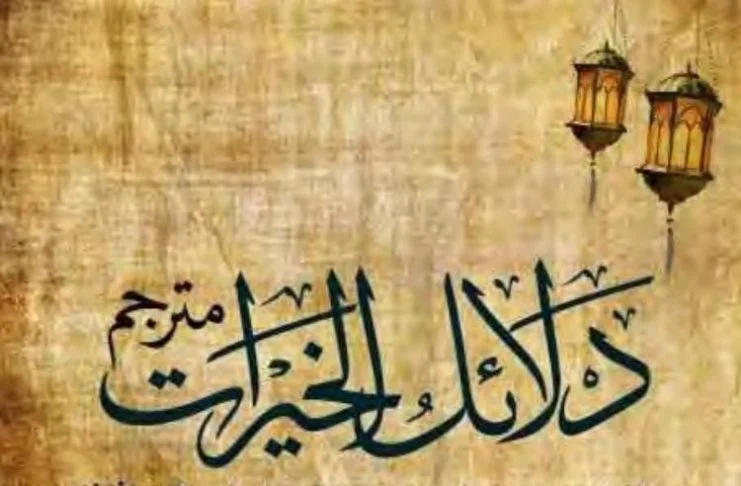 دلائل الخیرات
مترجم